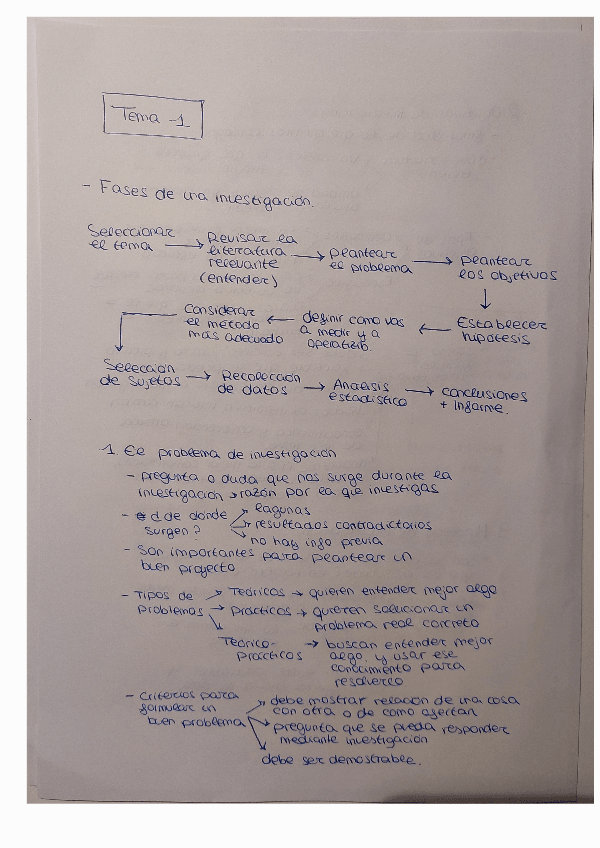 Tema -1
- Fases de una investigación.
Seleccionar el tema → Revisar la literatura relevante (entender) → plantear el problema → plantear los objetivos
↓
Establecer hipótesis
← definir como vas a medir y a operatizio.
← Considerar el método más adecuado
↓
Selección de sujetos → Recolección de datos → Análisis estadístico → conclusiones + Informe.
1 El problema de investigación
- pregunta o duda que nos surge durante la
investigación → razón por la que investigas
- d de donde surgen? → lagunas
→ resultados contradictorios
→ no hay info previa
- Son importantes para plantear un
buen proyecto
- Tipos de problemas → Teóricos → quieren entender mejor algo
→ prácticos → quieren solucionar un
problema real concreto
→ Teórico-prácticos → buscan entender mejor
algo, y usar ese
conocimiento para
resolverlo
- Criterios para formular un buen problema → debe mostrar relación de una cosa
con otra o de como afectan
→ pregunta que se pueda responder
mediante investigación
→ debe ser demostrable.